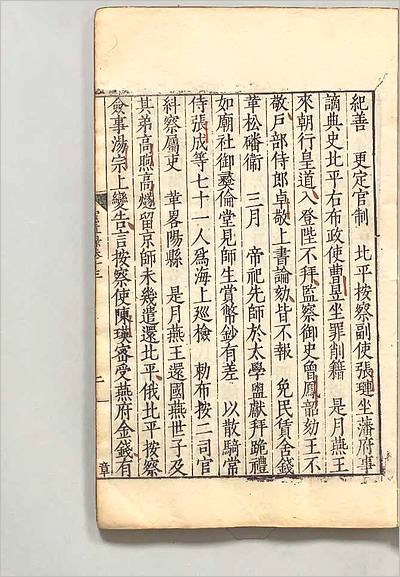 紀善　更定官制　北平按察副使張璉坐藩府事
謫典史北平右布政使曹昱坐罪削籍　是月燕王
來朝行皇道入登陛不拜監察御史曾鳳韶劾王不
敬戶部侍郎卓敬上書論劾皆不報　免民賃舍錢
革松磻衞　三月　帝祀先師於太學盥獻拜跪禮
如廟社御彞倫堂見師生賞幣鈔有差　以散騎常
侍張成等七十一人爲海上廵檢　勅布按二司官
糾察屬吏　革畧陽縣　是月燕王還國燕世子及
其弟高煦高燧留京師未幾遣還北平俄北平按察
僉事湯宗上變告言按察使陳瑛密受燕府金錢有
二
章